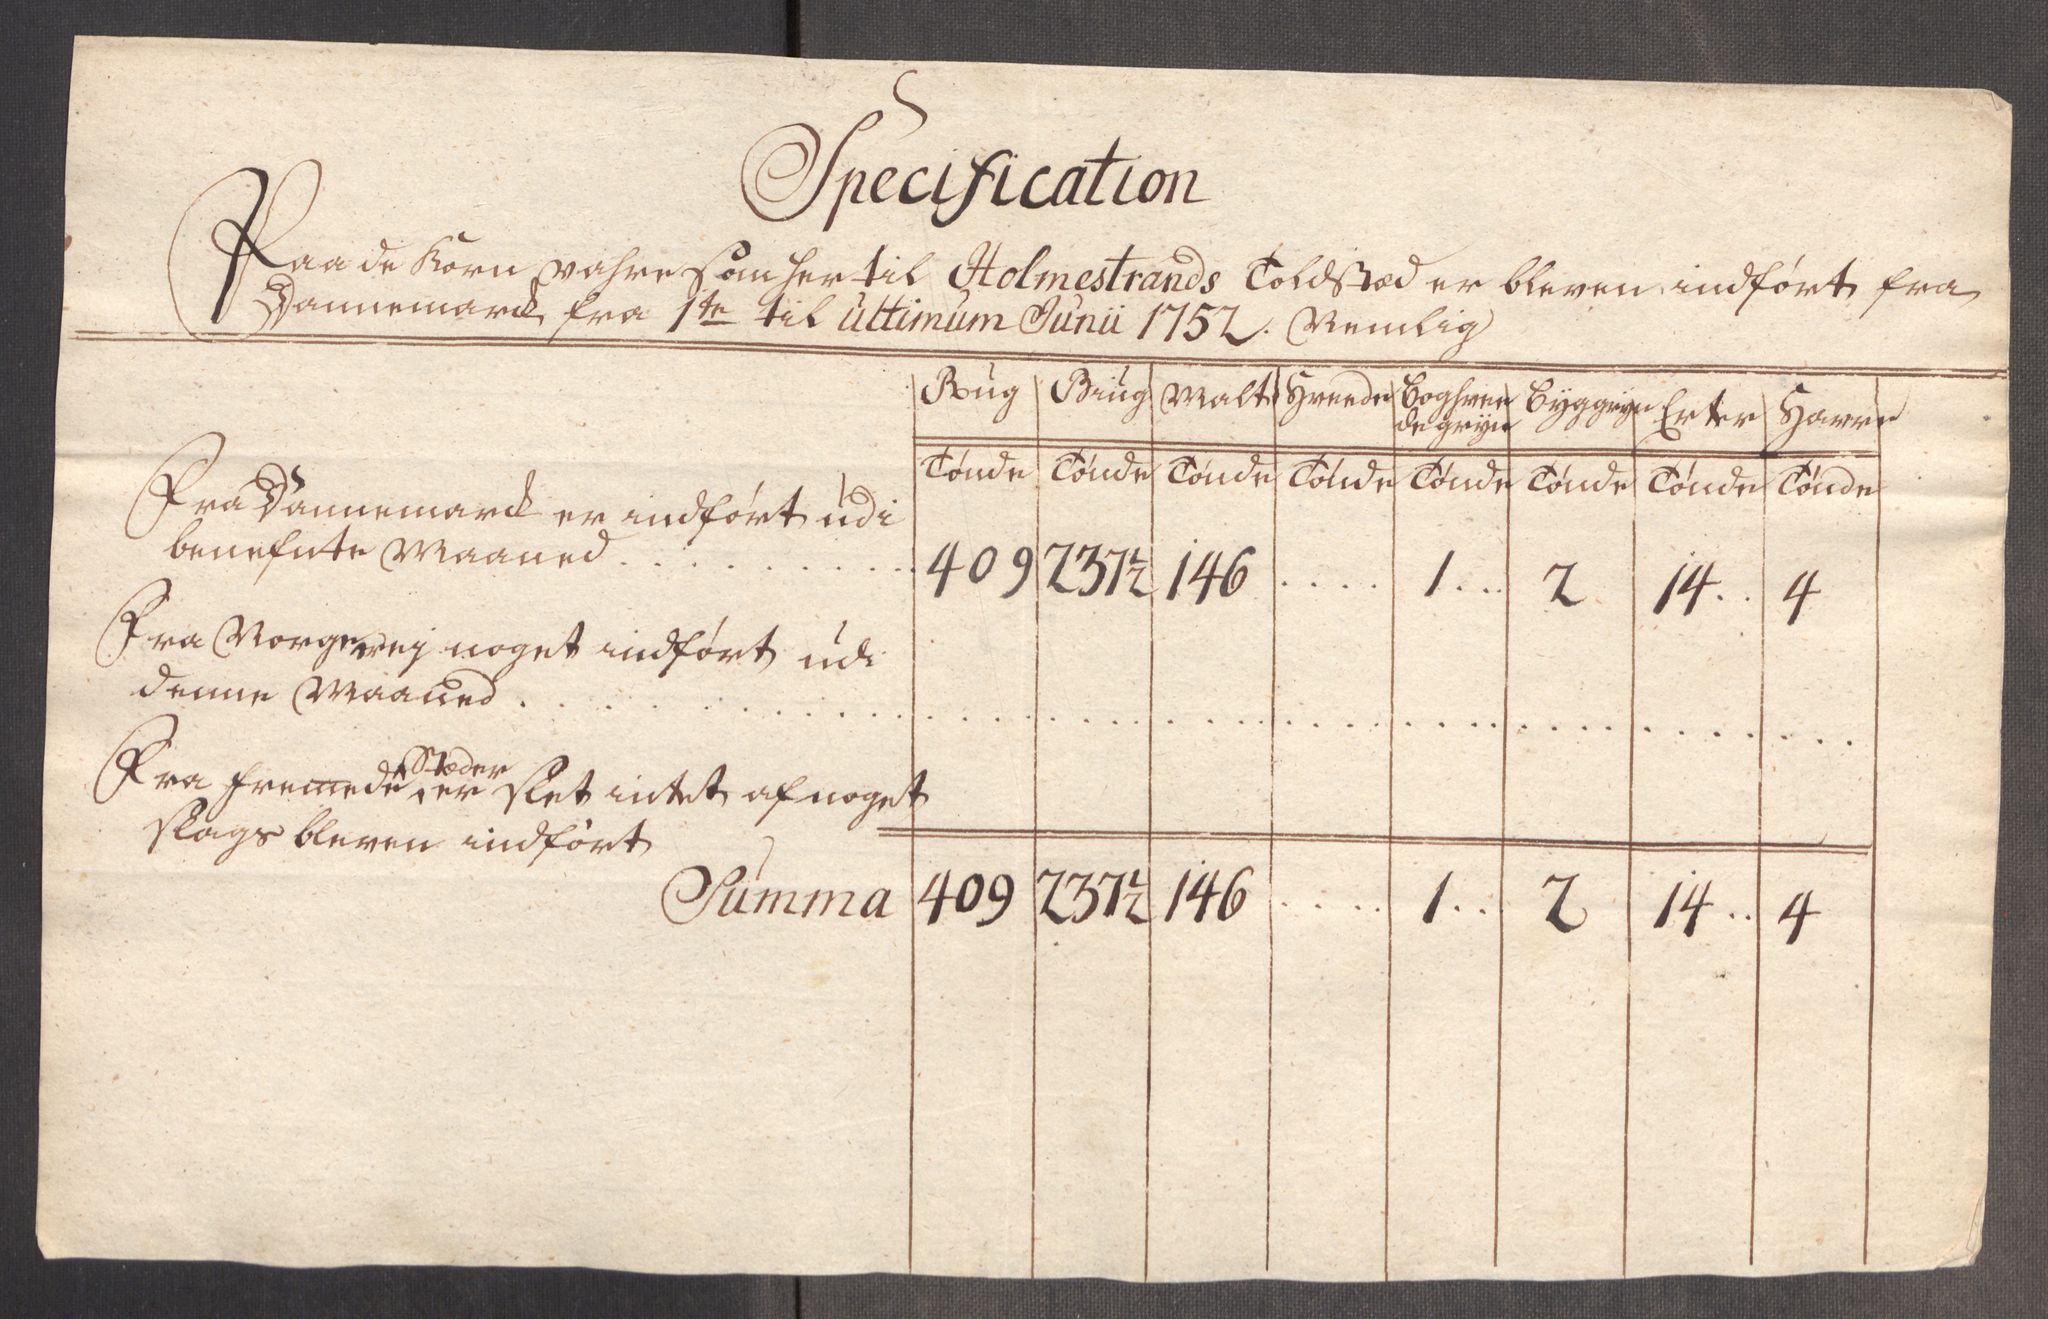 Specification
Paa de Korn vahre som her til Holmestrands Toldstæd er bleven indført fra
Dannemarck fra 1te til ultimum Junii 1752. Nemlig
Rug Biug Malt Hveede Boghvee Byggryn Erter Havre
de gryn
Tønde Tønde Tønde Tønde Tønde Tønde Tønde Tønde
Fra Dannemarck er indført udi
benefnte Maaned . . . . . . . . . . 409 237½ 146 . . . . 1 . . . 2 14 . . 4
Fra Norge ej noget indført udi
denne Maaned . . . . . . . . . .
Stæder
Fra fremede er slet intet af noget
slags bleven indført
Summa 409 237½ 146 . . . . 1 . . . 2 14 . . 4